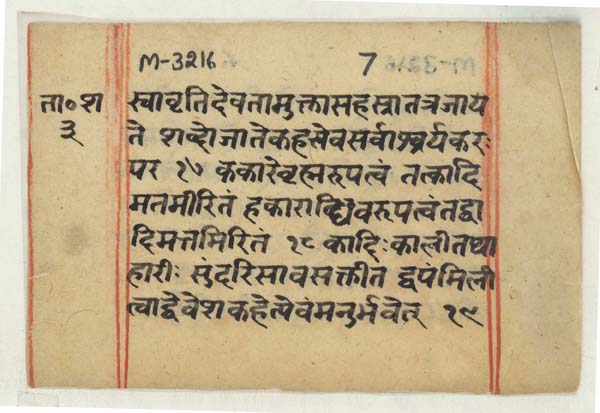 M-3216 7
ता०श स्वावृतिदेवतामुक्तासहस्रातत्रजाय
३ ते शब्दोजातेकहसेवसर्वाश्चर्यकरः
पर १७ ककारेवृह्मरुपत्वं तत्कादि
मतमीरितं हकाराच्छिवरुपत्वंतद्धा
दिमतमिरितं १८ कादिःकालीतथा
हारीः सुंदरिसावसक्तीत द्वपंमिली
त्वाद्देवेशकहेत्येवंमनुर्भवेत् १९